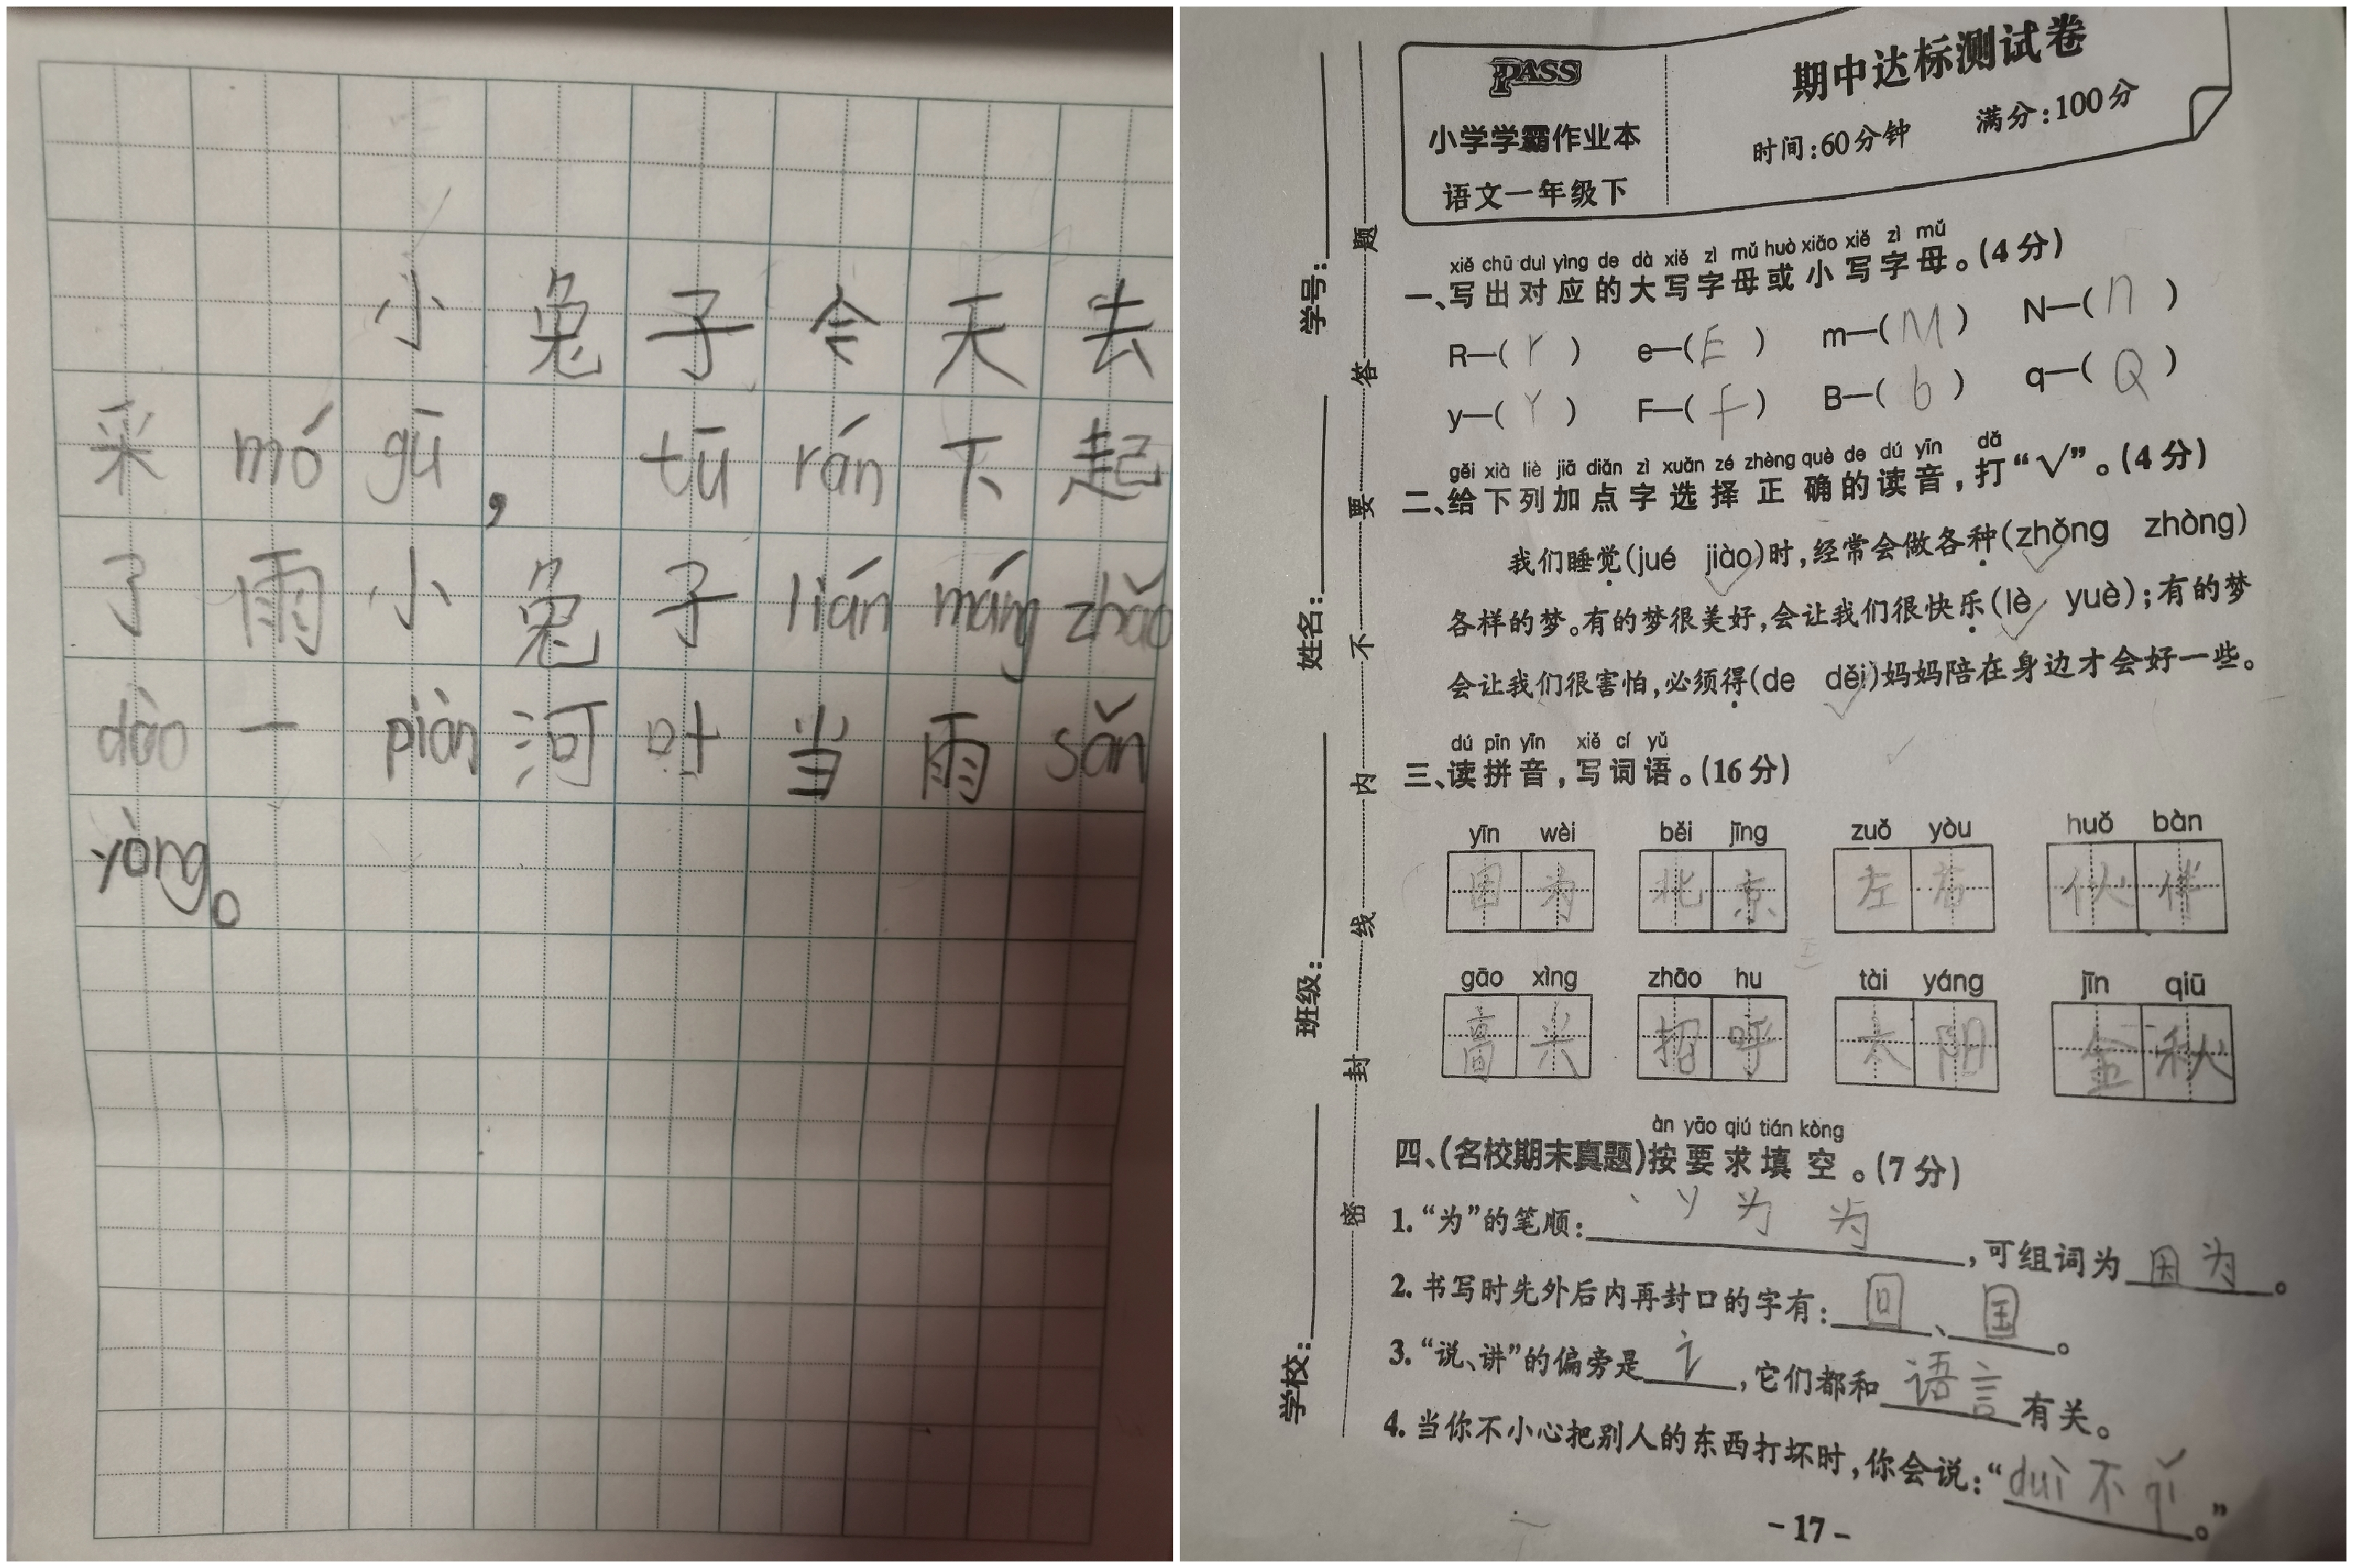 小兔子今天去
采mó gū，tū rán下起
了雨小兔子lián máng zhǎo
dào一piàn河叶当雨sǎn
yòng。
PASS
小学学霸作业本
语文一年级下
期中达标测试卷
时间:60分钟 满分:100分
学号:
姓名:
班级:
学校:
密封线内不要答题
xiě chū duì yìng de dà xiě zì mǔ huò xiǎo xiě zì mǔ
一、写出对应的大写字母或小写字母。(4分)
R—(r) e—(E) m—(M) N—(n)
y—(Y) F—(f) B—(b) q—(Q)
gěi xià liè jiā diǎn zì xuǎn zé zhèng què de dú yīn dǎ
二、给下列加点字选择正确的读音,打“√”。(4分)
我们睡觉(jué jiào)时,经常会做各种(zhǒng zhòng)
各样的梦。有的梦很美好,会让我们很快乐(lè yuè);有的梦
会让我们很害怕,必须得(de děi)妈妈陪在身边才会好一些。
dú pīn yīn xiě cí yǔ
三、读拼音,写词语。(16分)
yīn wèi běi jīng zuǒ yòu huǒ bàn
因为 北京 左右 伙伴
gāo xìng zhāo hu tài yáng jīn qiū
高兴 招呼 太阳 金秋
àn yāo qiú tián kòng
四、(名校期末真题)按要求填空。(7分)
1.“为”的笔顺: 丶 丷 为 为,可组词为因为。
2.书写时先外后内再封口的字有:回、国。
3.“说、讲”的偏旁是讠,它们都和语言有关。
4.当你不小心把别人的东西打坏时,你会说:“duì不qǐ。”
-17-